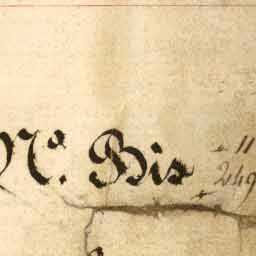 Nº. Bis
11
249